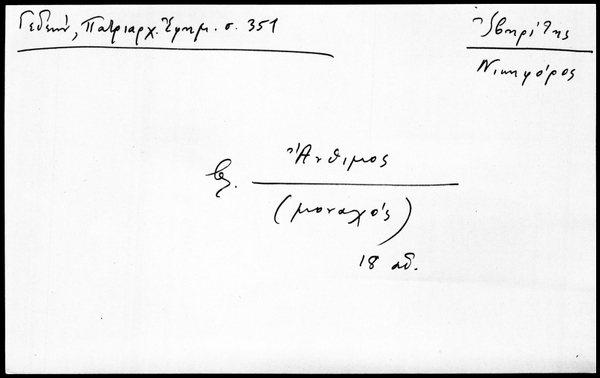 Γεδεών, Πατριαρχ. Ἐφημ. σ. 351
Ἰβηρίτης
Νικηφόρος
βλ. Ἄνθιμος
(μοναχός)
18 αἰ.